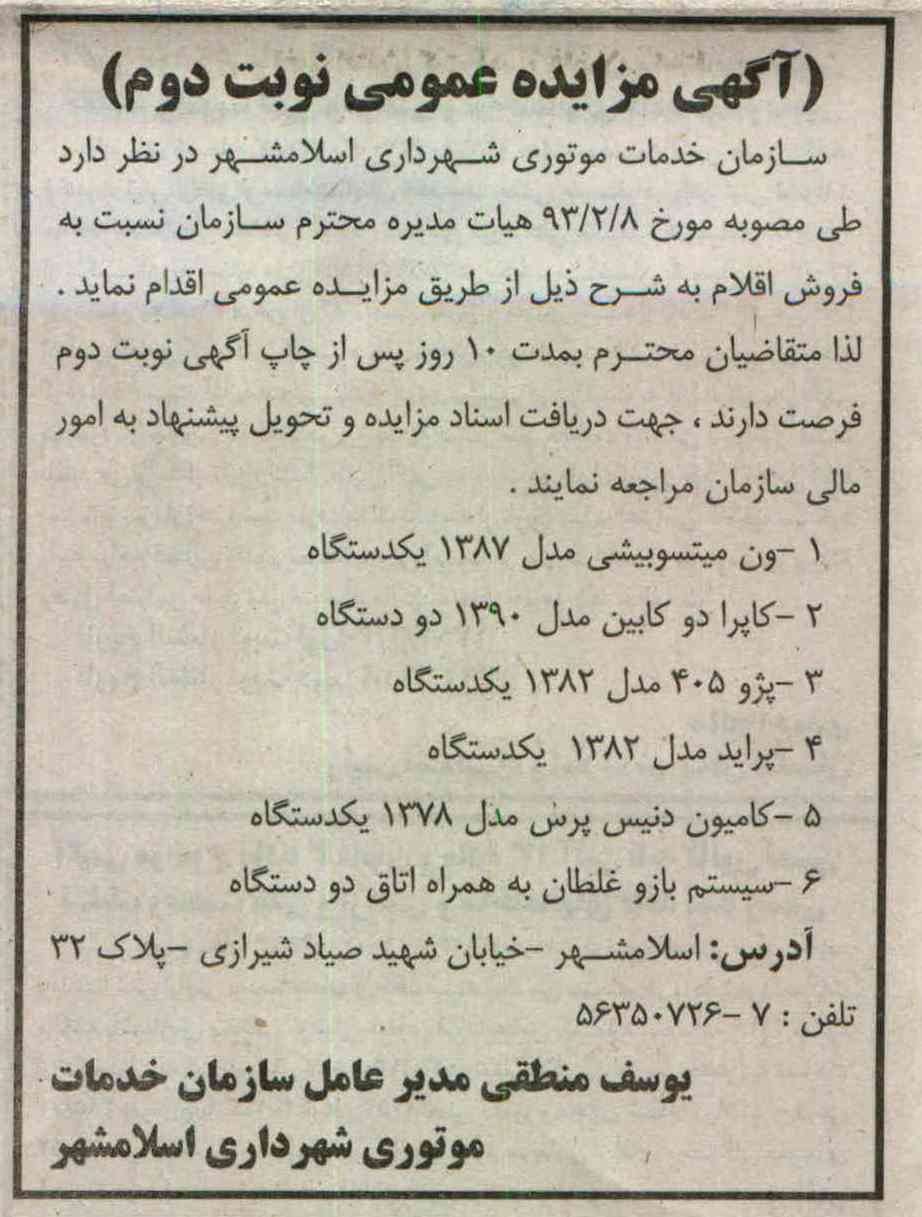 (آگهی مزایده عمومی نوبت دوم)
سازمان خدمات موتوری شهرداری اسلامشهر در نظر دارد
طی مصوبه مورخ ۹۳/۲/۸ هیات مدیره محترم سازمان نسبت به
فروش اقلام به شرح ذیل از طریق مزایده عمومی اقدام نماید .
لذا متقاضیان محترم بمدت ۱۰ روز پس از چاپ آگهی نوبت دوم
فرصت دارند ، جهت دریافت اسناد مزایده و تحویل پیشنهاد به امور
مالی سازمان مراجعه نمایند .
۱ -ون میتسوبیشی مدل ۱۳۸۷ یکدستگاه
۲ -کاپرا دو کابین مدل ۱۳۹۰ دو دستگاه
۳ -پژو ۴۰۵ مدل ۱۳۸۲ یکدستگاه
۴ -پراید مدل ۱۳۸۲ یکدستگاه
۵ -کامیون دنیس پرس مدل ۱۳۷۸ یکدستگاه
۶ -سیستم بازو غلطان به همراه اتاق دو دستگاه
آدرس: اسلامشهر -خیابان شهید صیاد شیرازی -پلاک ۳۲
تلفن : ۷ -۵۶۳۵۰۷۲۶
یوسف منطقی مدیر عامل سازمان خدمات
موتوری شهرداری اسلامشهر